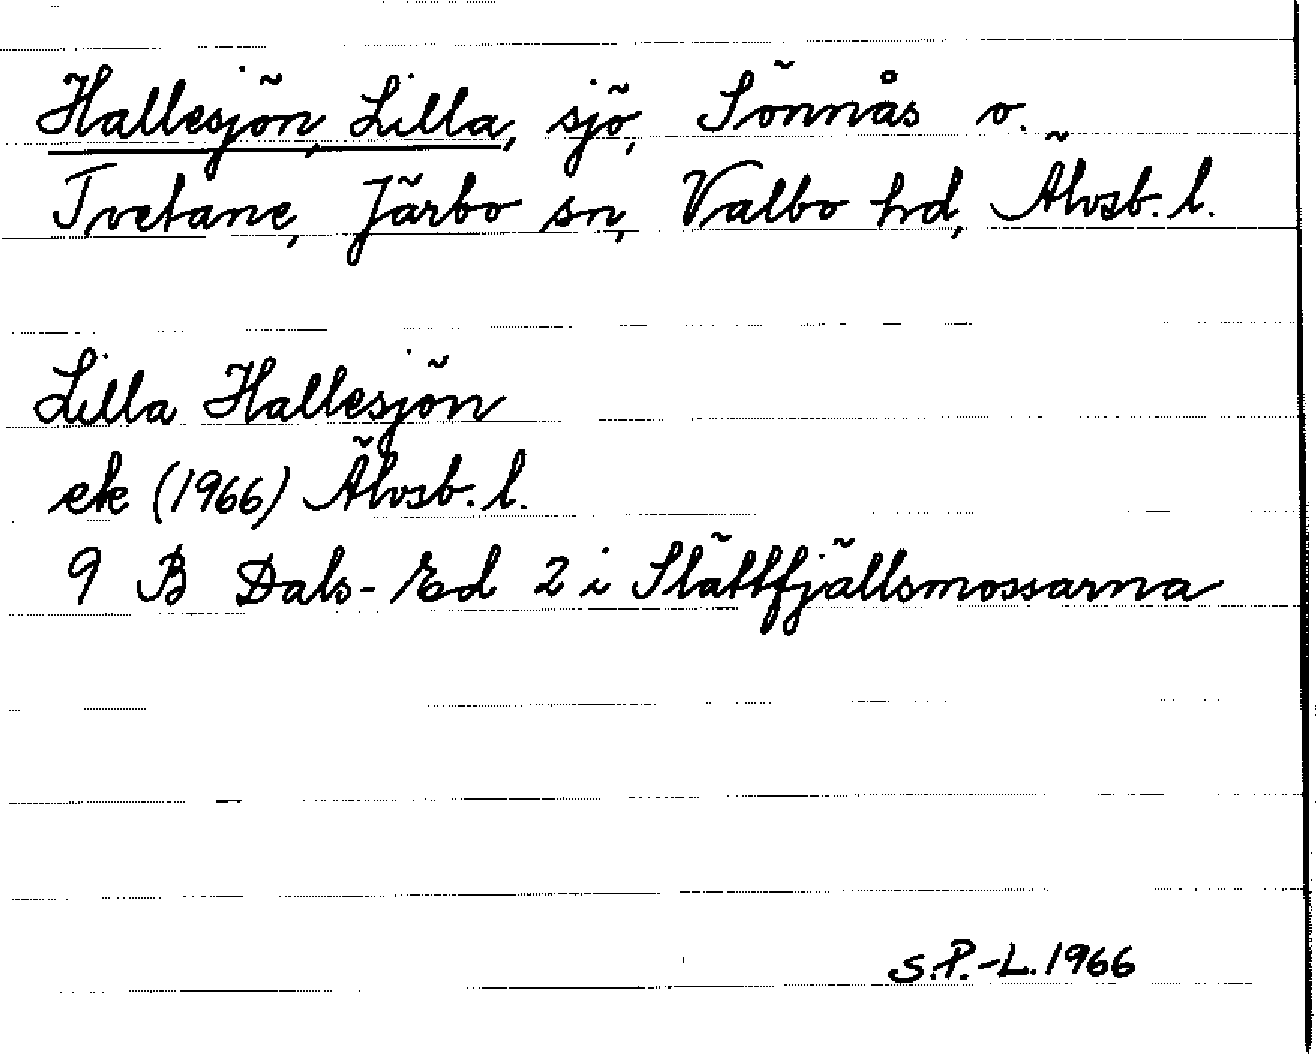 Hallesjön, Lilla, sjö, Sönnås o.
Tvetane, Järbo sn, Valbo hd, Älvsb. l.
Lilla Hallesjön
ek (1966) Älvsb. l.
9 B Dals-Ed 2 i Slättfjällsmossarna
S.P.-L. 1966